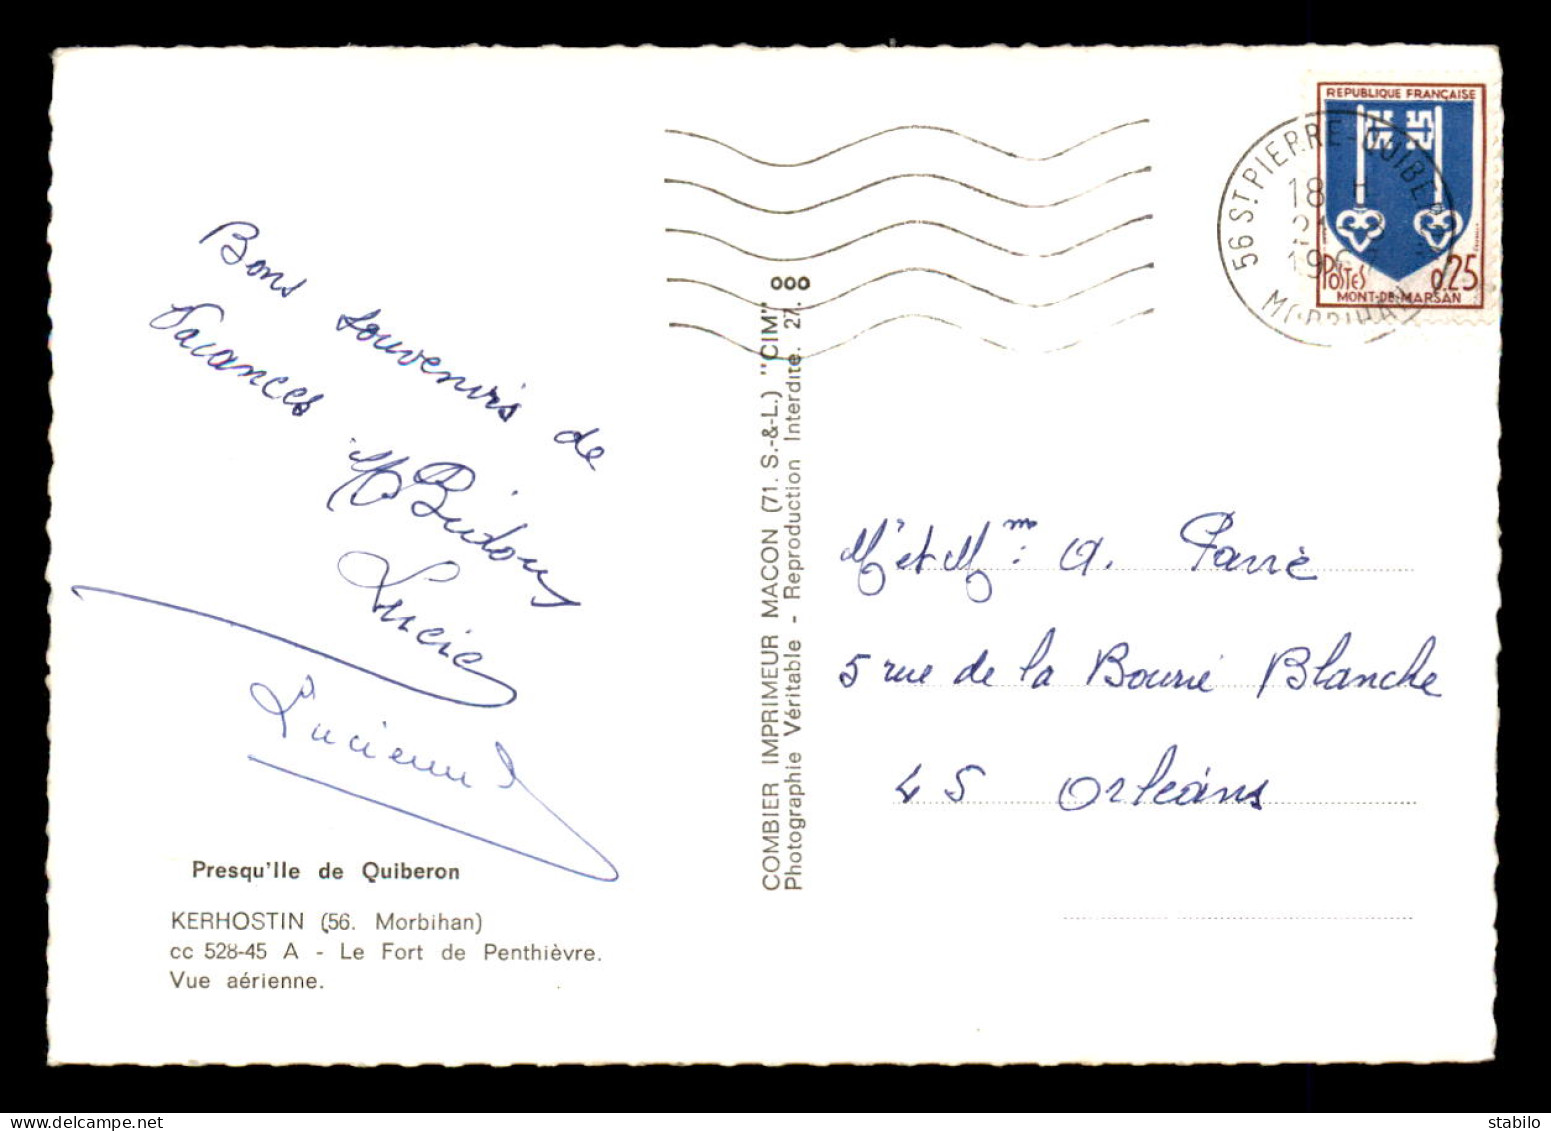 Bons souvenirs de
Vacances
Lucie
Lucienne
Presqu'Ile de Quiberon
KERHOSTIN (56. Morbihan)
cc 528-45 A - Le Fort de Penthièvre.
Vue aérienne.
COMBIER IMPRIMEUR MACON (71. S.-&-L.) "CIM" ooo
Photographie Véritable - Reproduction Interdite. 27.
REPUBLIQUE FRANÇAISE
POSTES 0.25
MONT-DE-MARSAN
56 ST PIERRE-QUIBERON
18 H
MORBIHAN
Mr et Mme A. Parré
5 rue de la Bourie Blanche
45 Orléans
stabilo